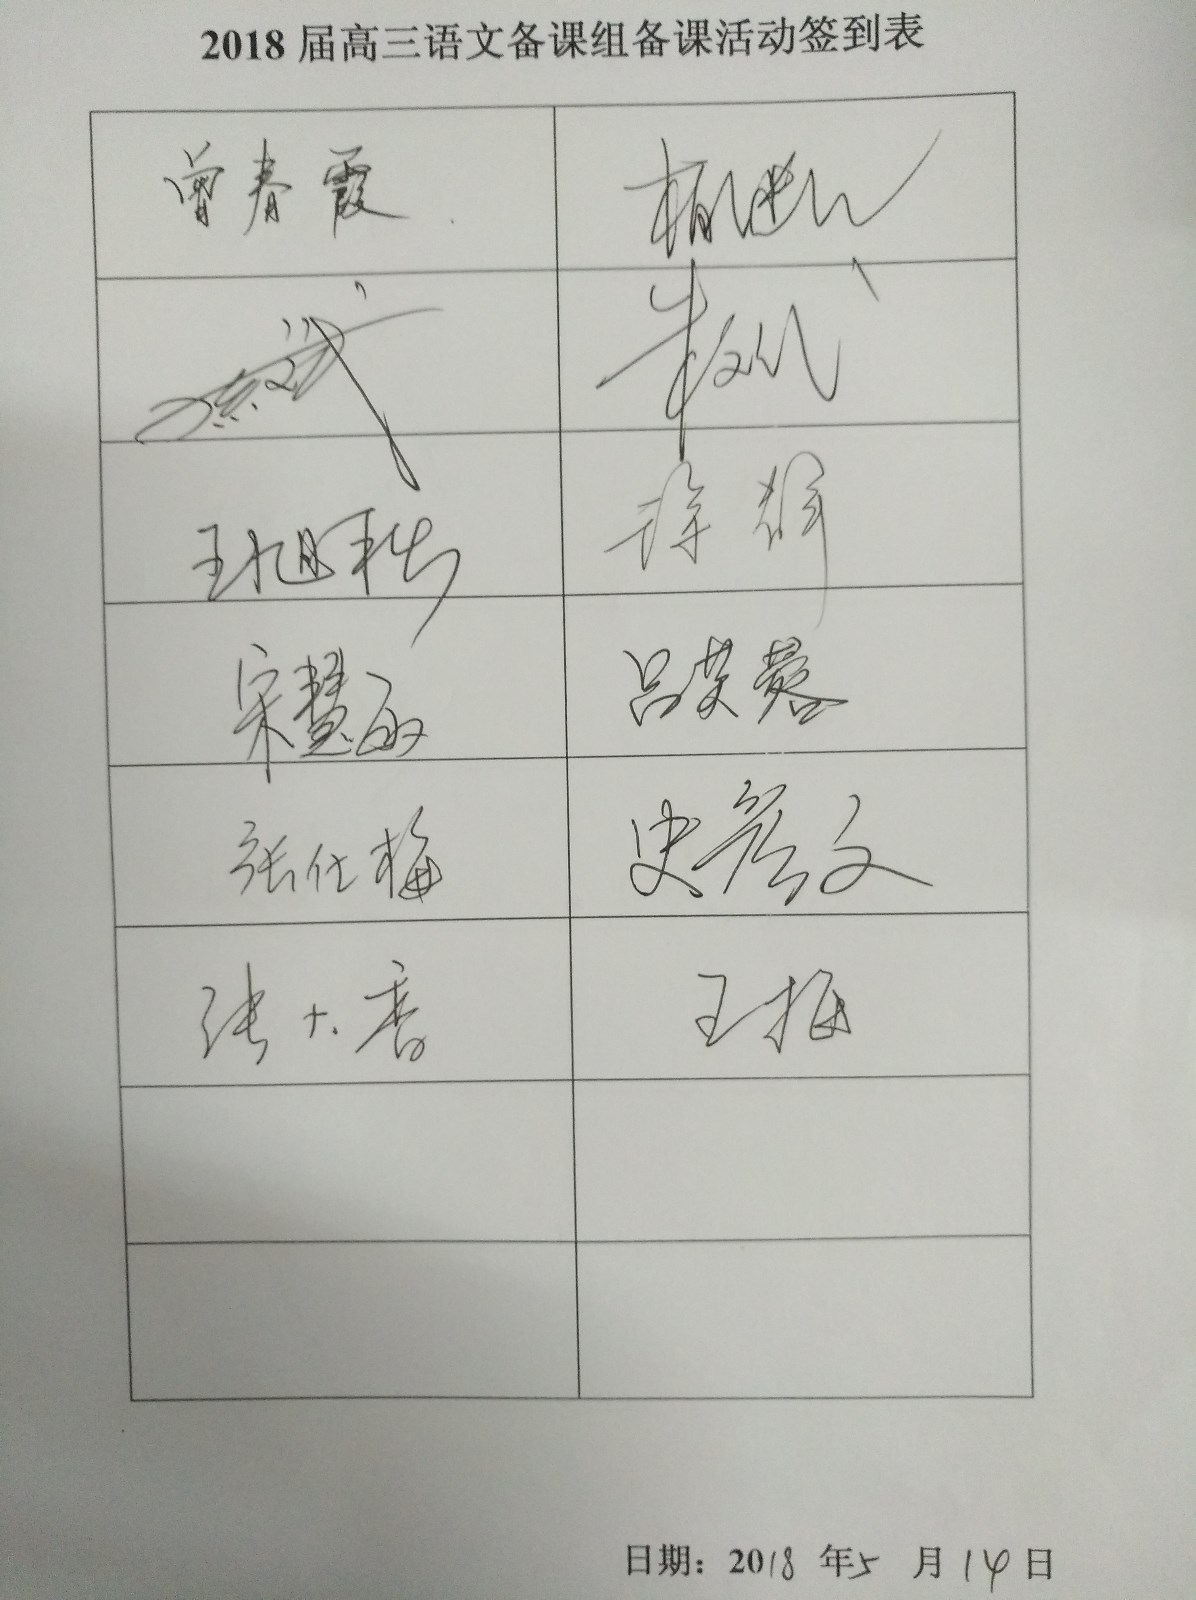 2018届高三语文备课组备课活动签到表
曾春霞
徐辉
宋慧敏 吕芙蓉
张仕梅 史彦文
张大香 王梅
日期：2018年5月14日